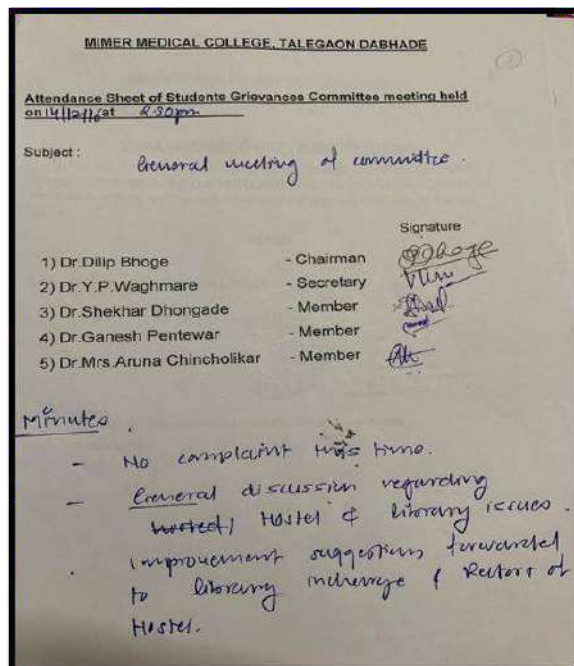 MIMER MEDICAL COLLEGE, TALEGAON DABHADE
Attendance Sheet of Students Grievances Committee meeting held
on 14/12/16 at 2.30pm
Subject : General meeting of committee.
Signature
1) Dr.Dilip Bhoge - Chairman
2) Dr.Y.P.Waghmare - Secretary
3) Dr.Shekhar Dhongade - Member
4) Dr.Ganesh Pentewar - Member
5) Dr.Mrs.Aruna Chincholikar - Member
Minutes.
- No complaint this time.
- General discussion regarding
Hostel & library issues.
improvement suggestions forwarded
to library incharge & Rectors of
Hostel.